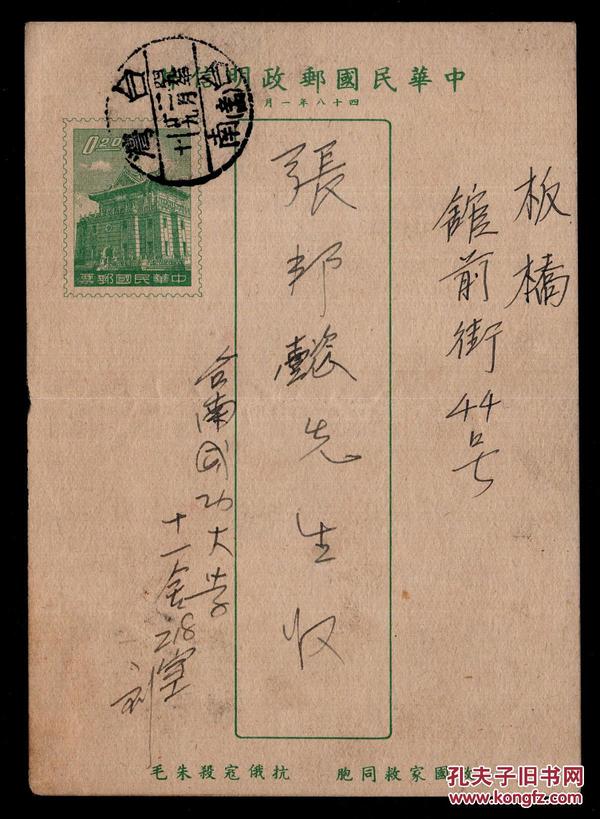 中華民國郵政明信片
四十八年一月
0.20
中華民國郵票
台灣
台南
板橋
館前街44号
張邦
先生收
台南成功大学
十一舍218室
刘
救國家救同胞
抗俄寇殺朱毛
孔夫子旧书网
www.kongfz.com